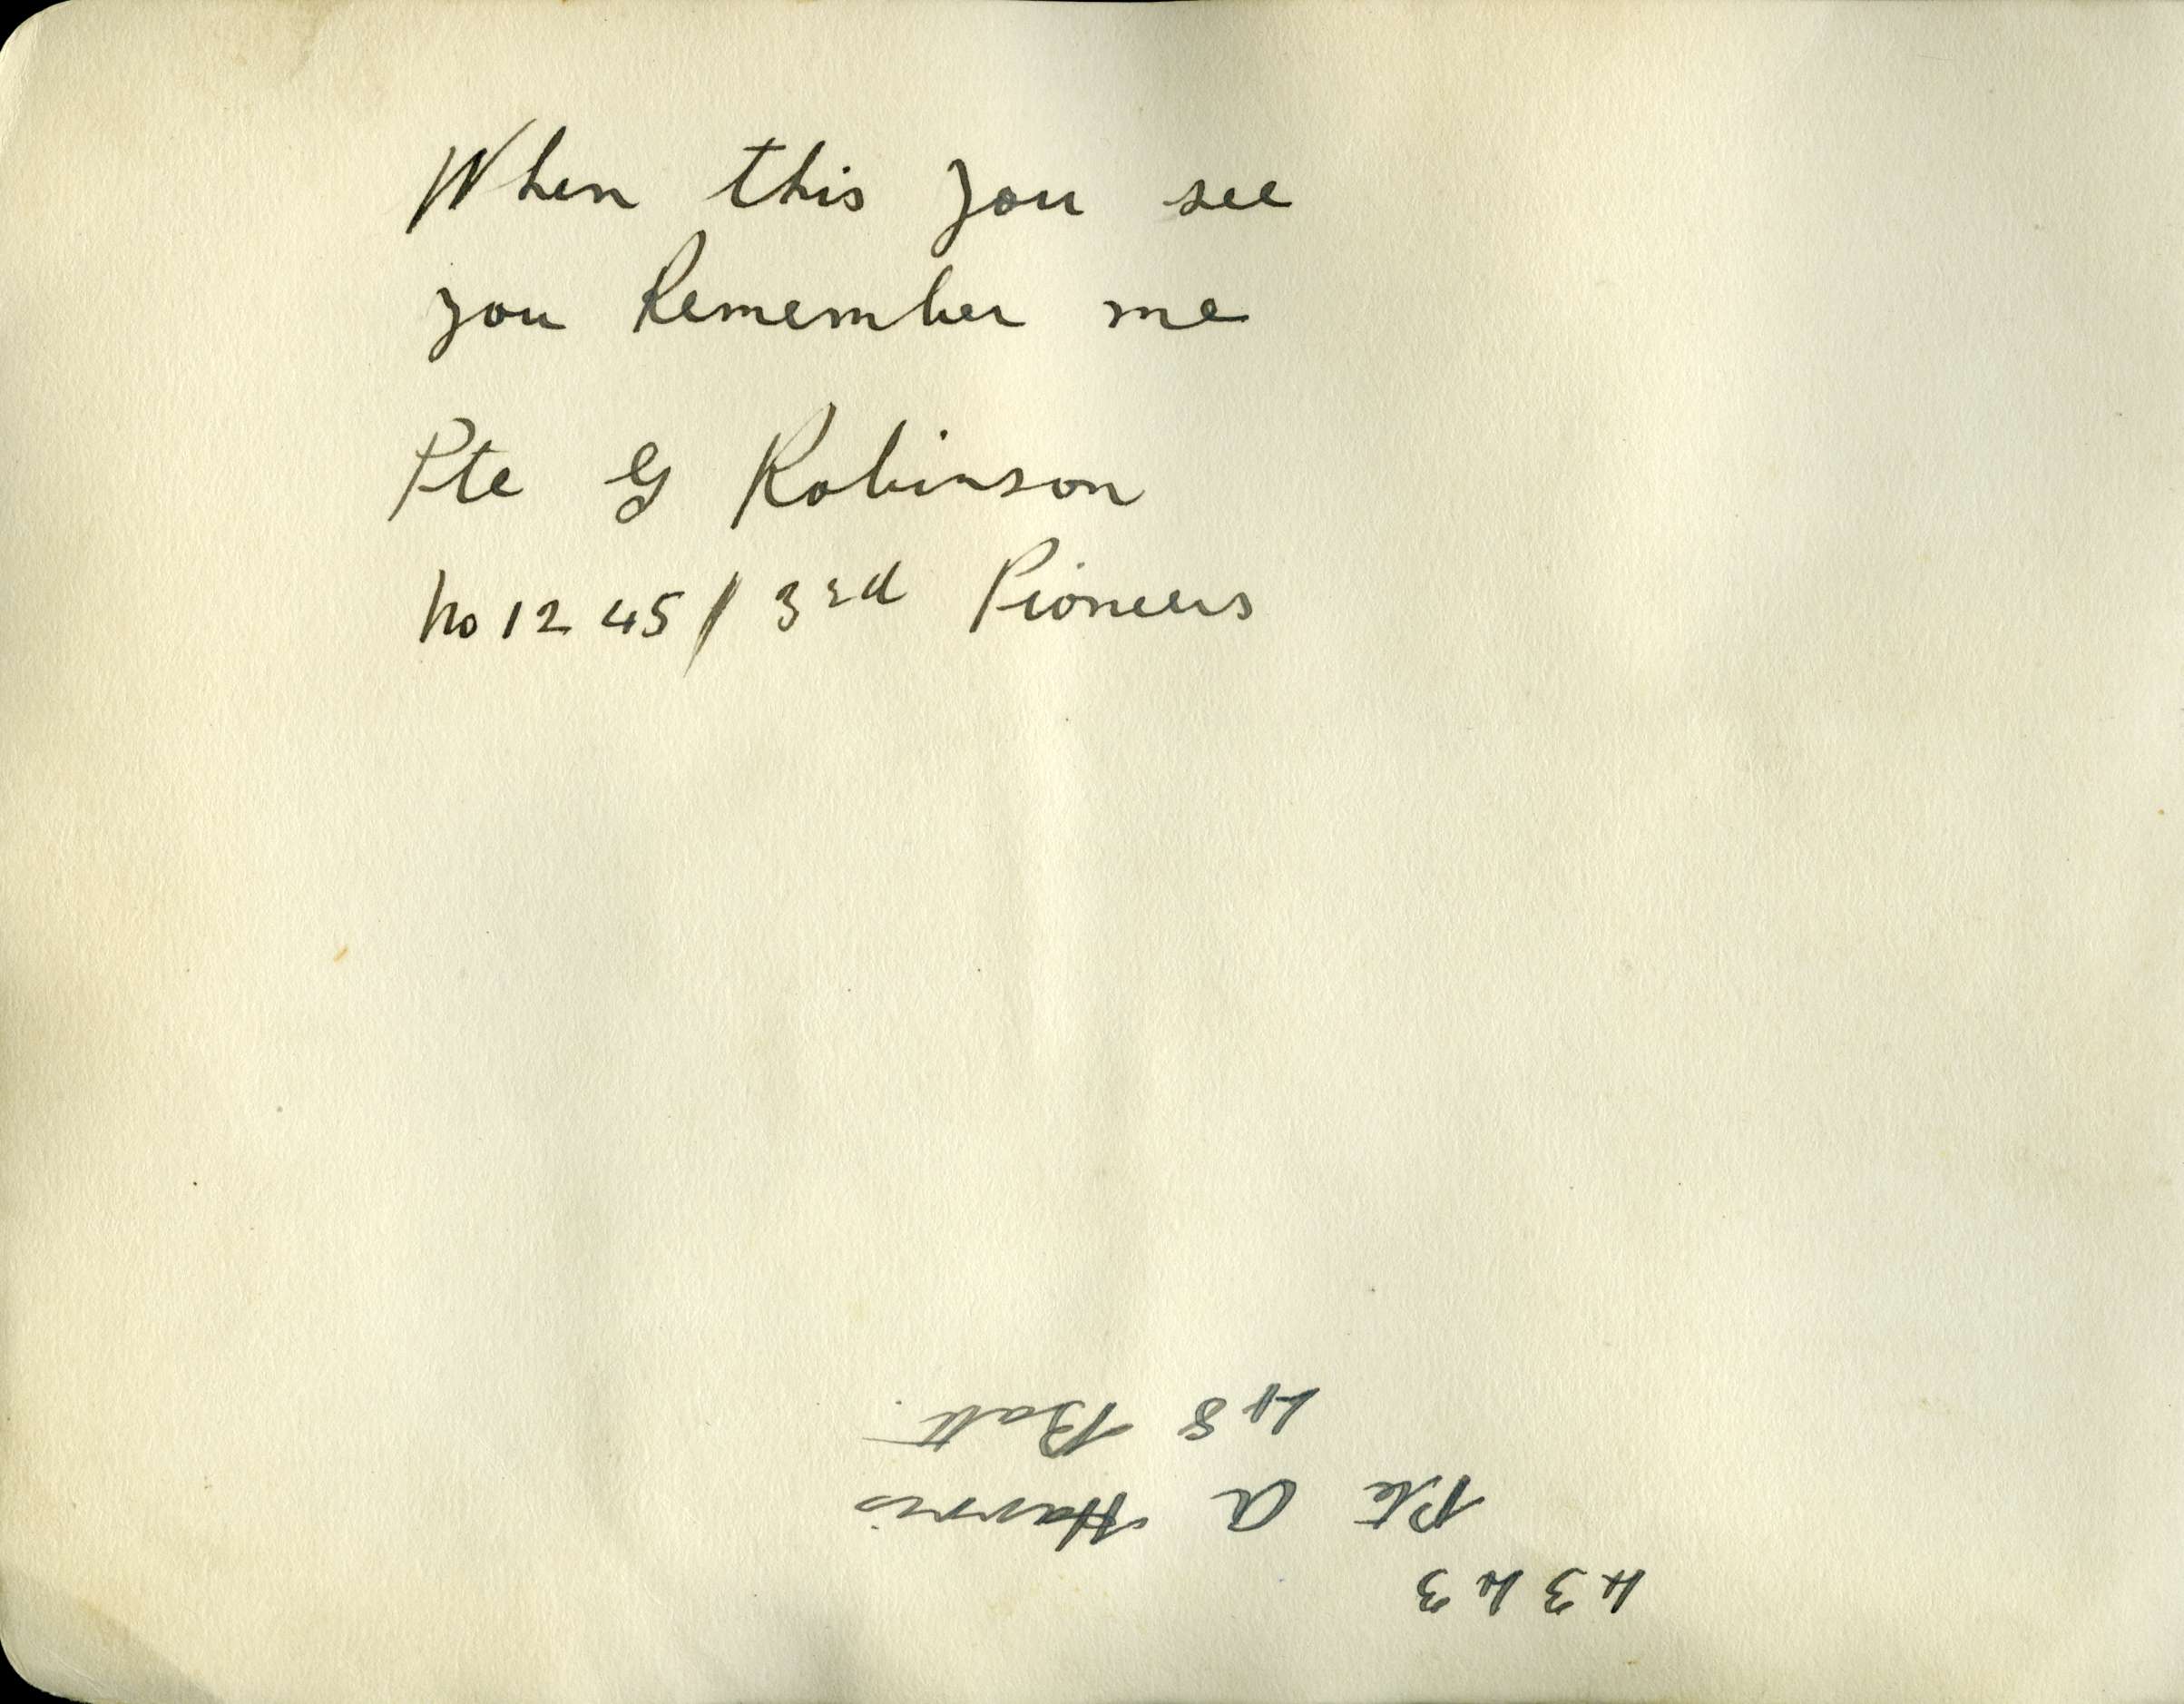 When this you see
you Remember me
Pte G Robinson
No 1245 / 3rd Pioneers
4343
Pte A Harris
48 Batt